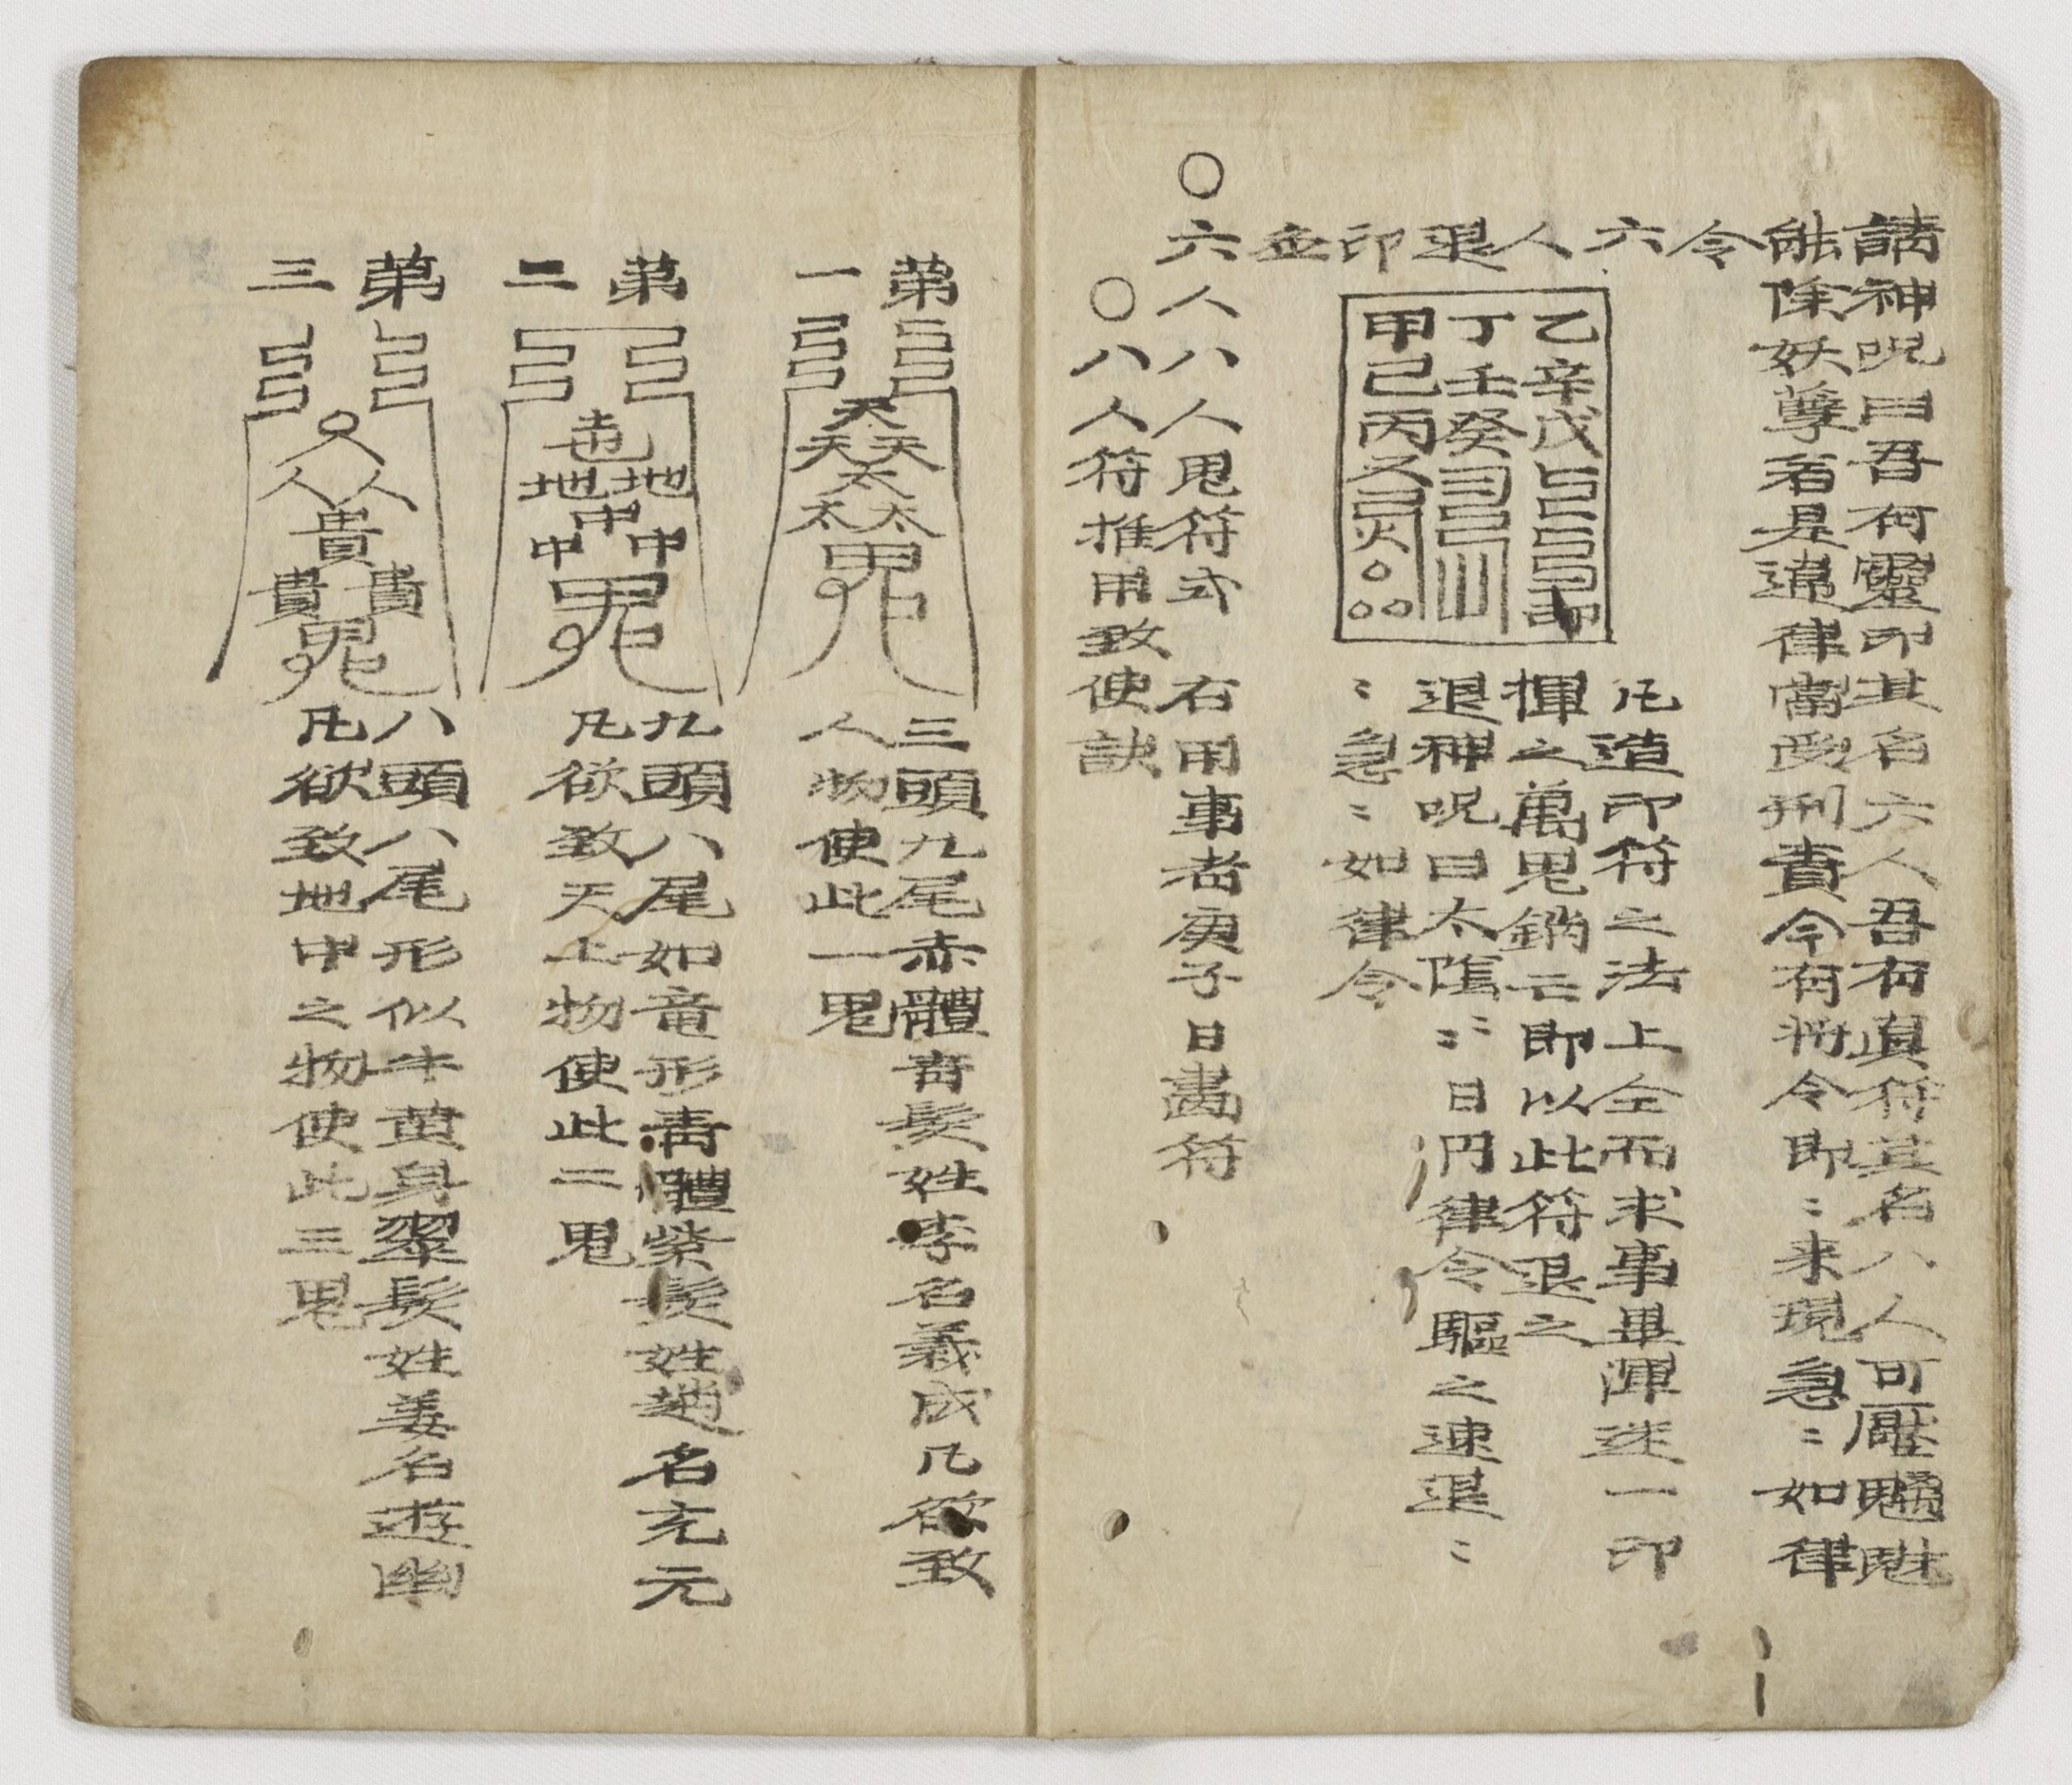 請神呪曰吾有靈印其名六人吾有眞符其名八人可壓魑魅
能除妖孽若是違律當受刑責今有將令即〻来現急〻如律
令
六人退印
乙辛戊
丁壬癸
甲己丙
凡造印符之法上仝而求事畢渾迷一印
揮之萬鬼鎖云即以此符退之
退神呪曰太陰〻〻日円律令驅之速退〻
〻急〻如律令
○六人八人鬼符式 右用事者庚子日畵符
○八人符推用致使訣
第一
天天天太太太
三頭九尾赤體青髮姓李名義成凡欲致
人物使此一鬼
第二
地地中中中
九頭八尾如竜形青體紫髮姓趙名充元
凡欲致天上物使此二鬼
第三
人人貴貴貴
八頭八尾形似牛黄身翠髮姓姜名遊幽
凡欲致地中之物使此三鬼